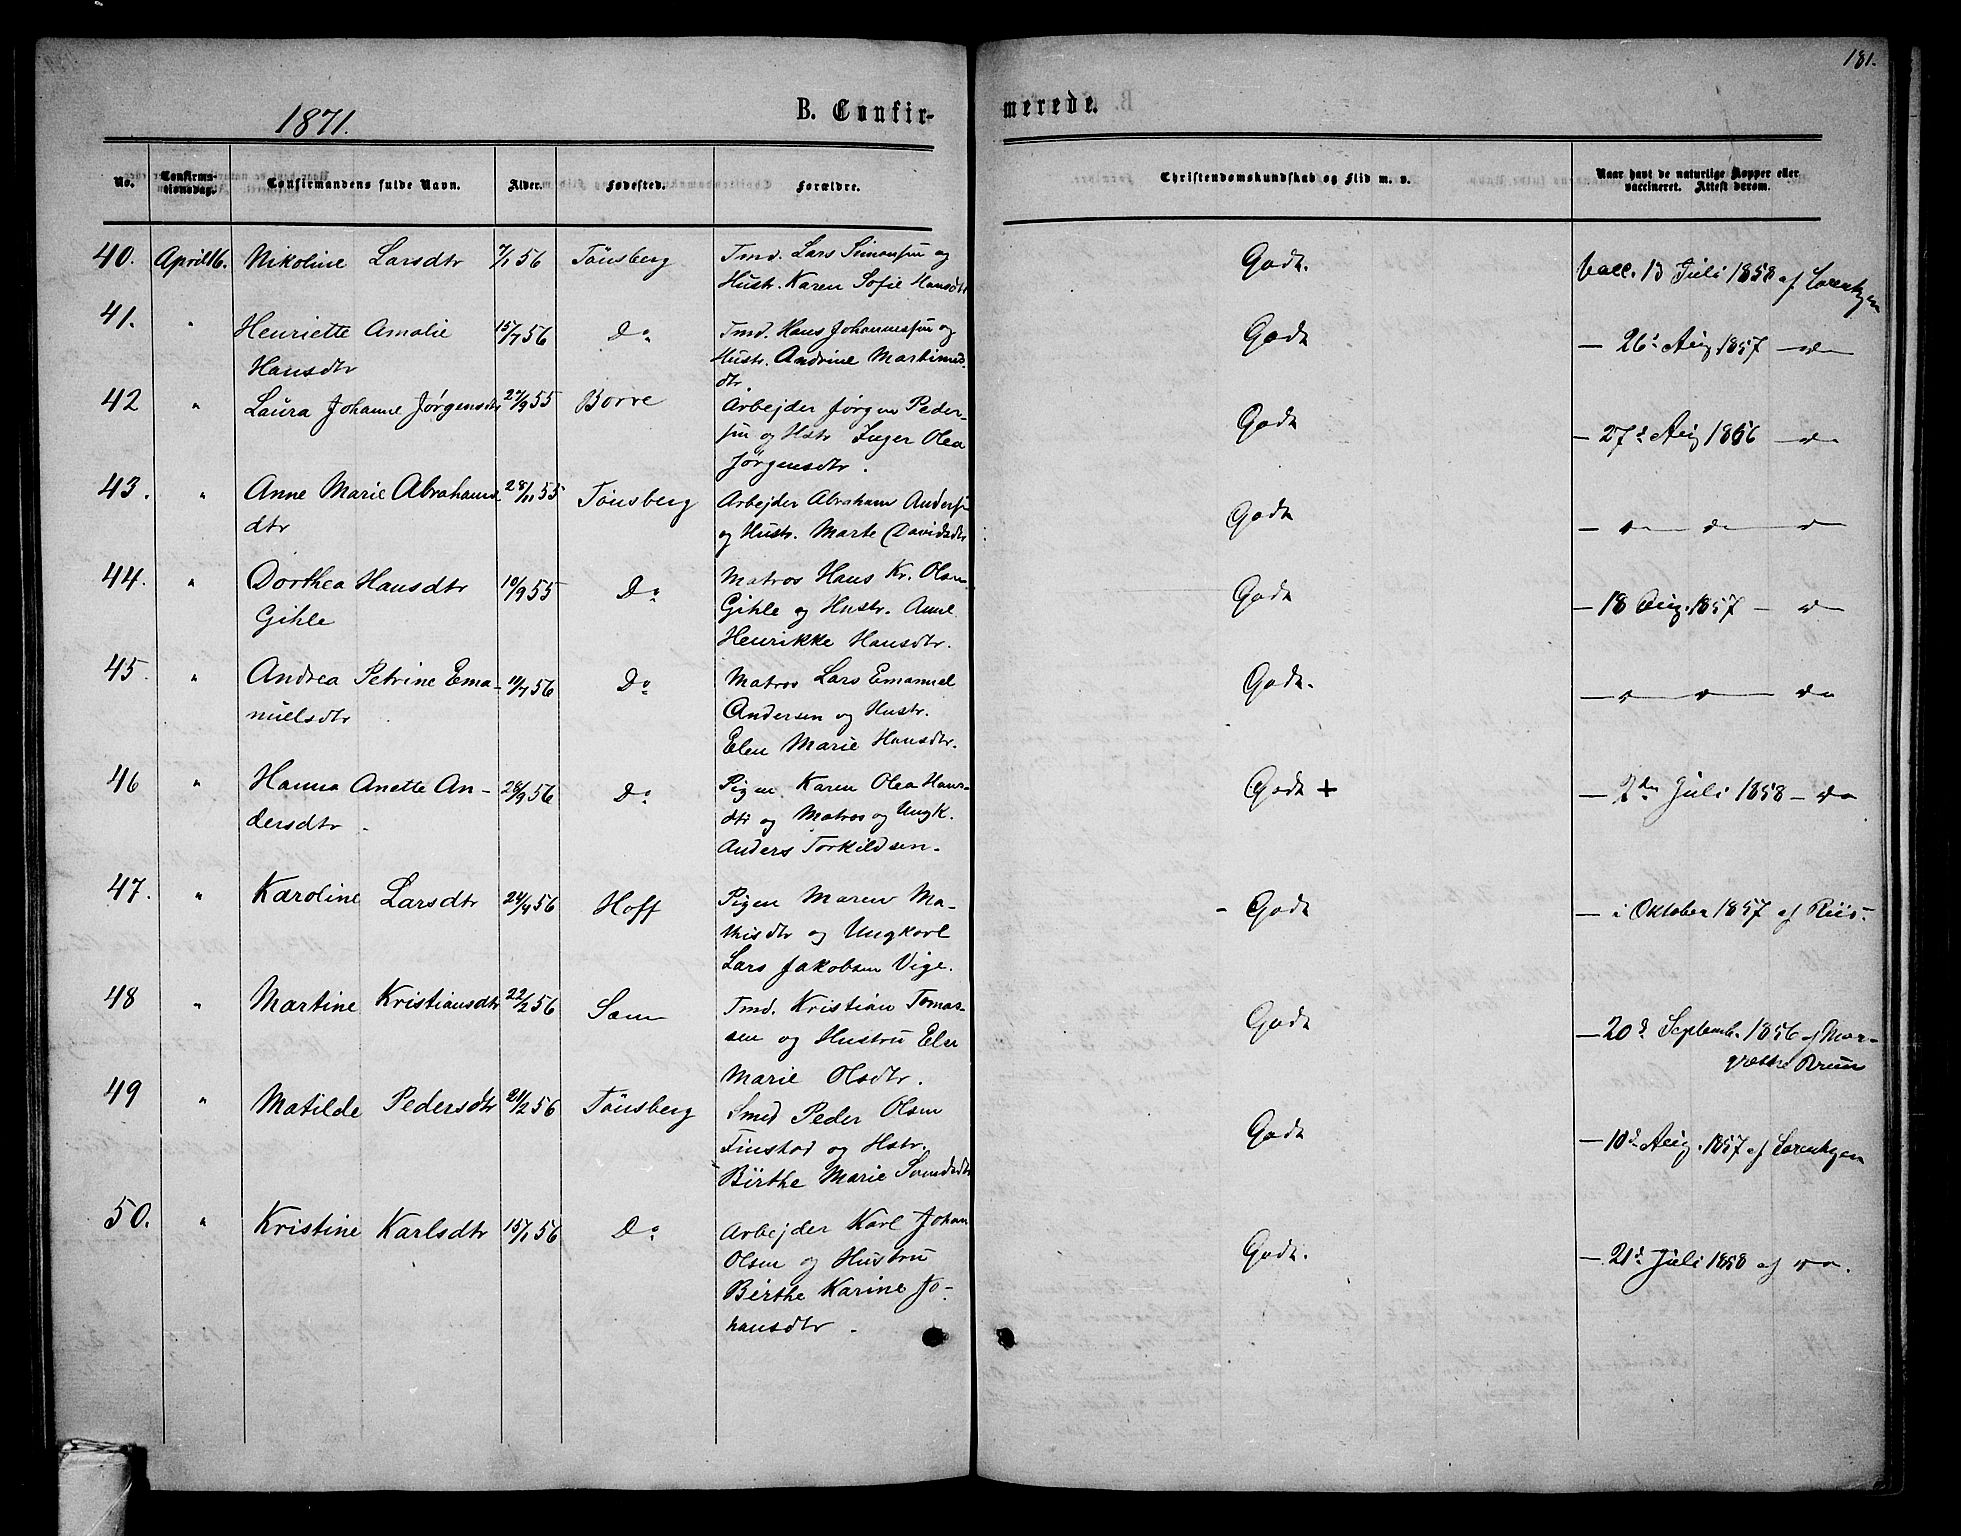 181.
1871.
B. Confir-
merede.
No.
Confirma-
tionsdag.
Confirmandens fulde Navn.
Alder.
Fødested.
Forældre.
Christendomskundskab og Flid m. v.
Naar havt de naturlige Kopper eller
vaccineret. Attest derom.
40. April 16. Nikoline Larsdtr 7/1 56 Tönsberg Tmd. Lars Simonsen og Godt. Vacc. 13 Juli 1858 af Lorentzen
Hustr. Karen Sofie Hansdtr
41. " Henriette Amalie 15/7 56 Do Tmd. Hans Johannesen og Godt — 26d Aug 1857 — do
Hansdtr Hustr. Andrine Martinsd.
dtr
42 " Laura Johanne Jørgensdtr 27/9 55 Borre Arbejder Jørgen Peder- Godt — 27d Aug 1856 — do
sen og Hstr Inger Olea
Jørgensdtr.
43. " Anne Marie Abrahams- 28/11 55 Tönsberg Arbejder Abraham Andersen Godt — do do do
dtr og Hustr. Marte Davidsdtr
44. " Dorthea Hansdtr 10/9 55 Do Matros Hans Kr. Olsen Godt — 18 Aug. 1857 — do
Gihle Gihle og Hustr. Anne
Henrikke Hansdtr.
45. " Andrea Petrine Ema- 11/7 56 Do Matros Lars Emanuel Godt. — do do do
nuelsdtr Andersen og Hustr.
Elen Marie Hansdtr.
46 " Hanna Anette An- 28/9 56 Do Pigen Karen Olea Hans- Godt + — 2den Juli 1858 — do
dersdtr. dtr og Matros og Ungk.
Anders Torkildsen.
47. " Karoline Larsdtr 24/4 56 Hoff Pigen Maren Ma- - Godt — i Oktober 1857 af Riis-
thisdtr og Ungkarl
Lars Jakobsen Vige.
48 " Martine Kristiansdtr 22/2 56 Sem Tmd. Kristian Tomas- Godt — 20d Septemb. 1856 af Mar-
sen og Hustru Elen grethe Bruun
Marie Olsdtr.
49 " Matilde Pedersdtr 21/2 56 Tönsberg Smed Peder Olsen Godt — 10d Aug. 1857 af Lorentzen
Finstad og Hstr.
Birthe Marie Svendsdtr
50. " Kristine Karlsdtr 15/1 56 Do Arbejder Karl Johan Godt. — 21d Juli 1858 af do.
Olsen og Hustru
Birthe Karine Jo-
hansdtr.